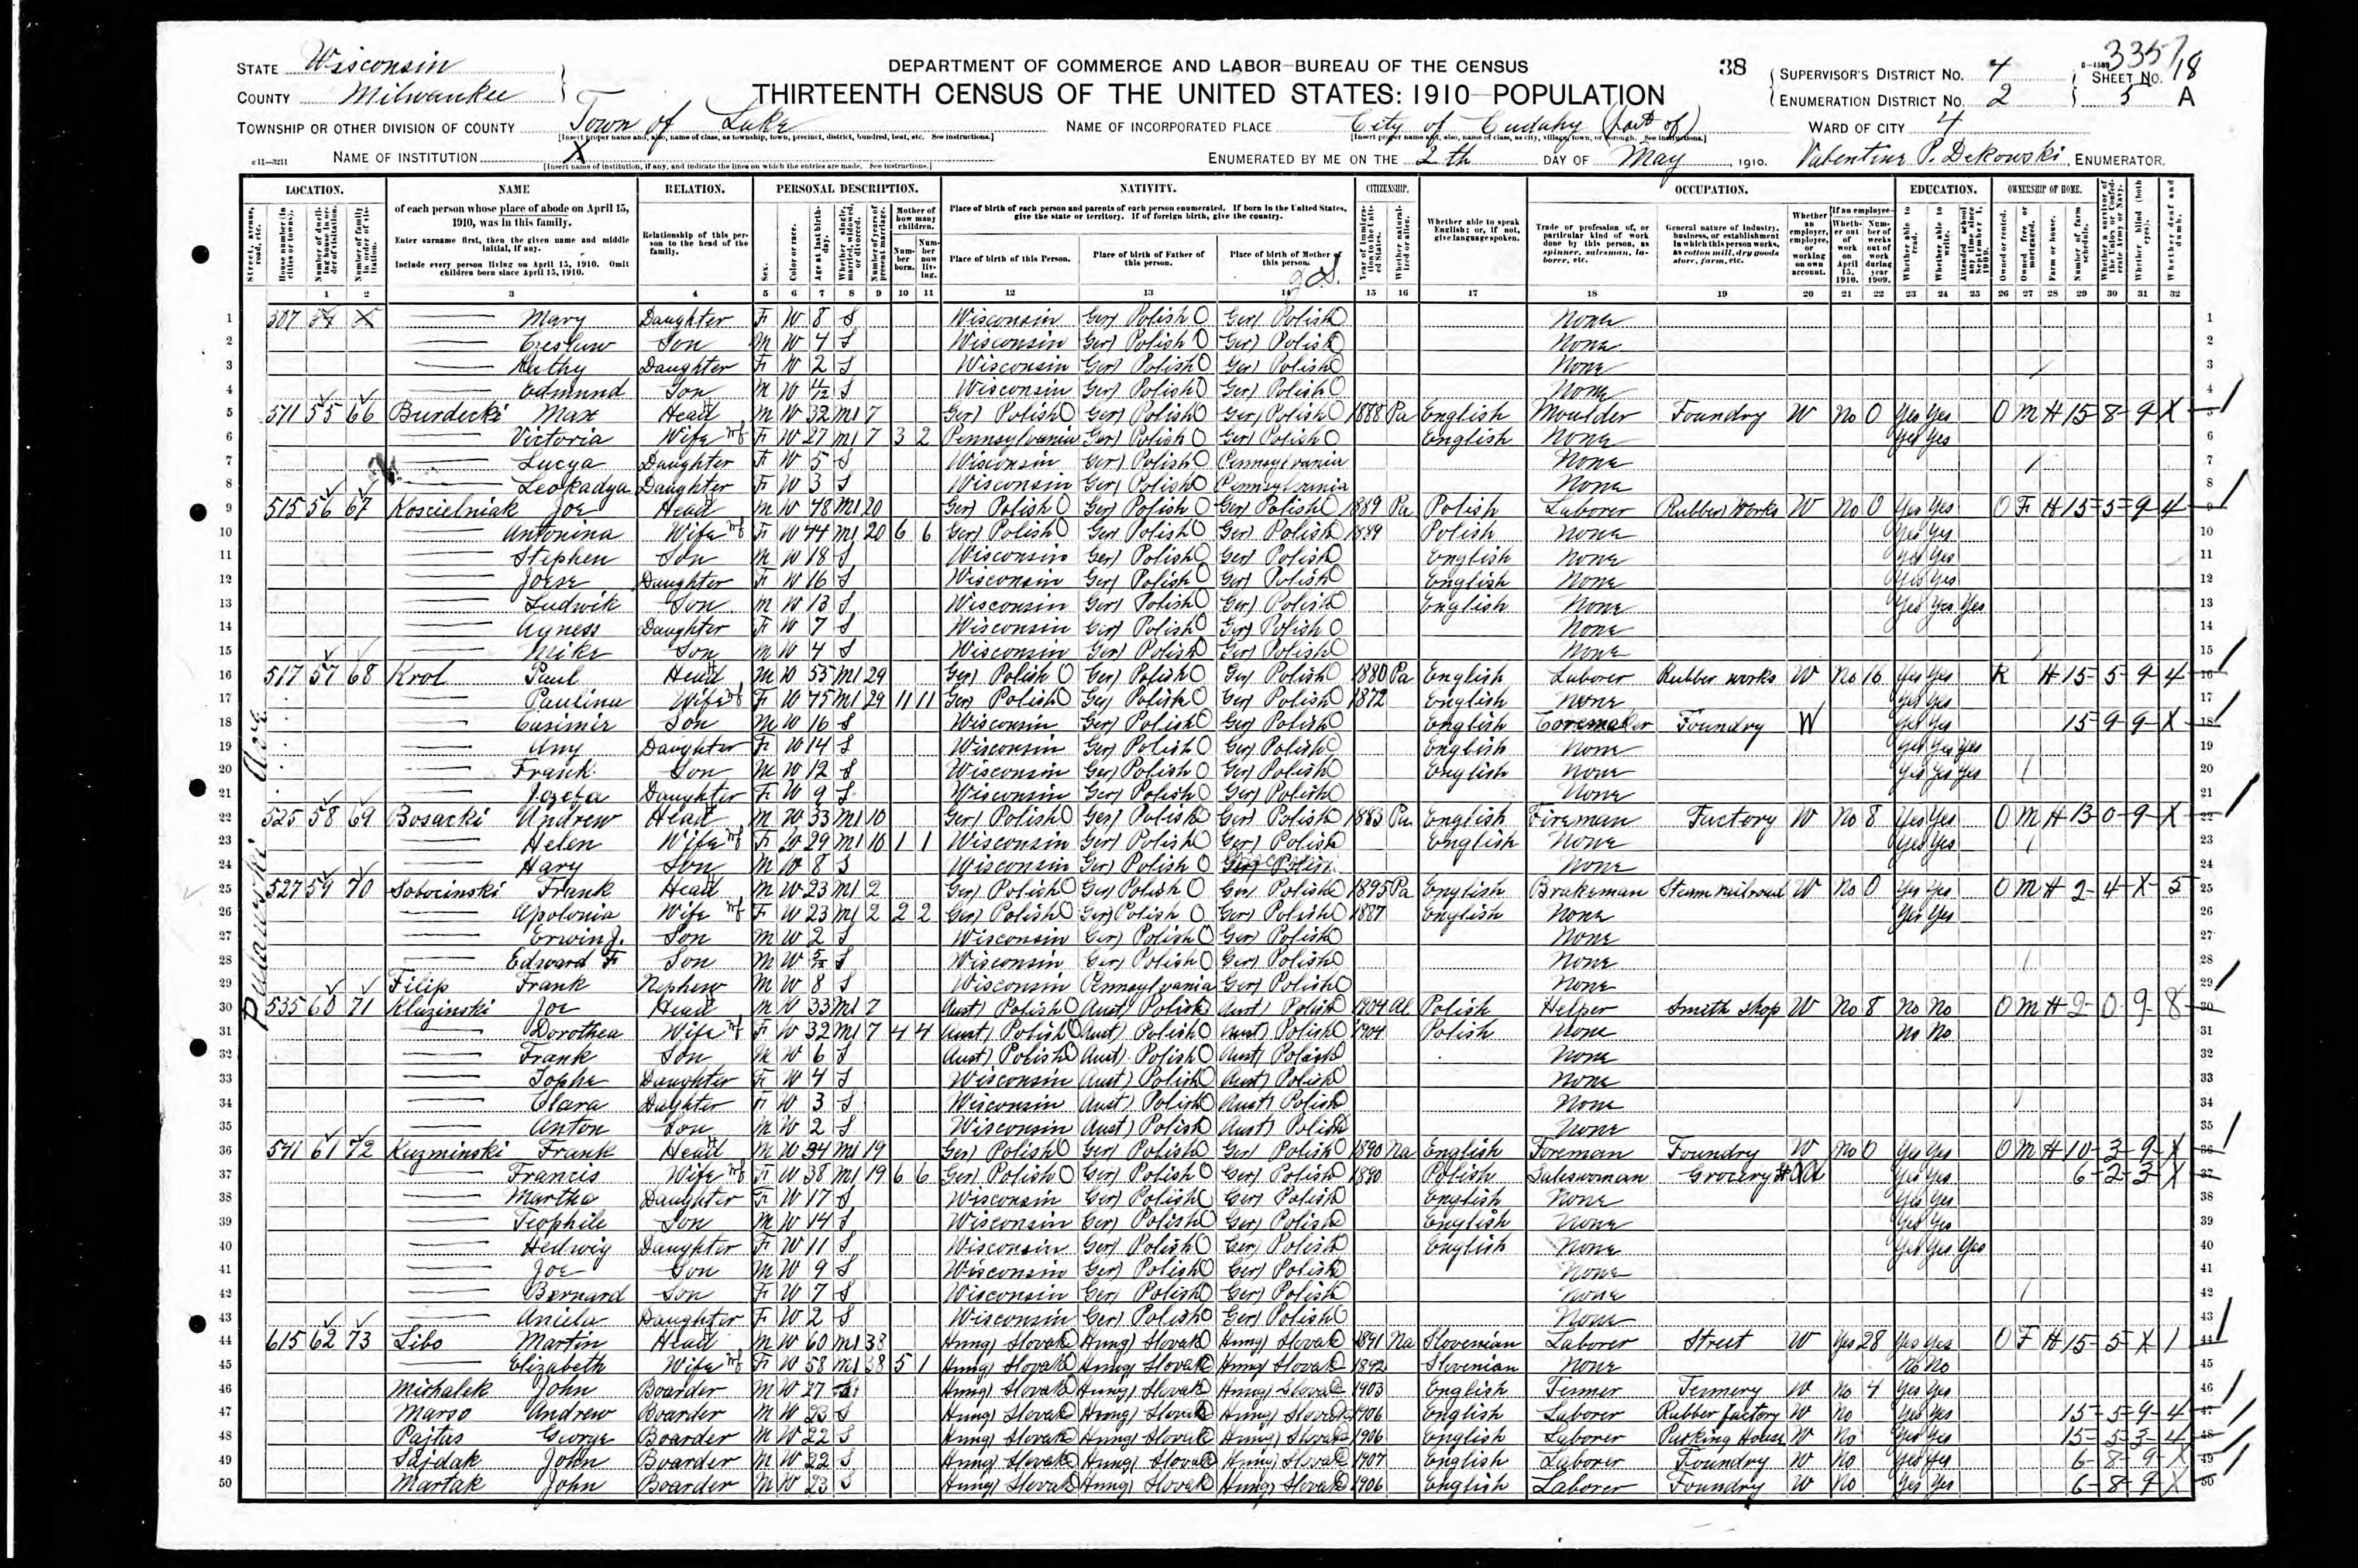 STATE Wisconsin
COUNTY Milwaukee
DEPARTMENT OF COMMERCE AND LABOR—BUREAU OF THE CENSUS
THIRTEENTH CENSUS OF THE UNITED STATES: 1910—POPULATION
38
SUPERVISOR'S DISTRICT No. 4
ENUMERATION DISTRICT No. 2
SHEET No.
5 A
18
TOWNSHIP OR OTHER DIVISION OF COUNTY Town of Lake
[Insert proper name and, also, name of class, as township, town, precinct, district, hundred, beat, etc. See instructions.]
NAME OF INCORPORATED PLACE City of Cudahy (part of)
[Insert proper name and, also, name of class, as city, village, town, or borough. See instructions.]
WARD OF CITY 4
NAME OF INSTITUTION X
[Insert name of institution, if any, and indicate the lines on which the entries are made. See instructions.]
ENUMERATED BY ME ON THE 2th DAY OF May, 1910. Valentine P. Dekowski, ENUMERATOR.
LOCATION. NAME RELATION. PERSONAL DESCRIPTION. NATIVITY. CITIZENSHIP. OCCUPATION. EDUCATION. OWNERSHIP OF HOME.
of each person whose place of abode on April 15, 1910, was in this family.
Enter surname first, then the given name and middle initial, if any.
Include every person living on April 15, 1910. Omit children born since April 15, 1910.
Relationship of this person to the head of the family.
Place of birth of each person and parents of each person enumerated. If born in the United States, give the state or territory. If of foreign birth, give the country.
Place of birth of this Person. Place of birth of Father of this person. Place of birth of Mother of this person.
Whether able to speak English; or, if not, give language spoken.
Pulawski Ave
1 307 Mary Daughter F W 8 S Wisconsin Ger) Polish Ger) Polish None
2 Czeslaw Son M W 4 S Wisconsin Ger) Polish Ger) Polish None
3 Daughter F W 2 S Wisconsin Ger) Polish Ger) Polish None
4 Edmund Son M W S Wisconsin Ger) Polish Ger) Polish None
5 511 55 66 Burdecki Max Head M W 32 M1 7 Ger) Polish Ger) Polish Ger) Polish 1888 Pa English Moulder Foundry W No 0 Yes Yes O M H 15-8-9-X
6 Victoria Wife F W 27 M1 7 3 2 Pennsylvania Ger) Polish Ger) Polish English None Yes Yes
7 Lucya Daughter F W 5 S Wisconsin Ger) Polish Pennsylvania None
8 Leokadya Daughter F W 3 S Wisconsin Ger) Polish Pennsylvania None
9 515 56 67 Koscielniak Joe Head M W 48 M1 20 Ger) Polish Ger) Polish Ger) Polish 1889 Pa Polish Laborer Rubber Works W No 0 Yes Yes O F H 15-5-9-4
10 Antonina Wife F W 44 M1 20 6 6 Ger) Polish Ger) Polish Ger) Polish 1889 Polish None Yes Yes
11 Stephen Son M W 18 S Wisconsin Ger) Polish Ger) Polish English None Yes Yes
12 Daughter F W 16 S Wisconsin Ger) Polish Ger) Polish English None Yes Yes
13 Ludwik Son M W 13 S Wisconsin Ger) Polish Ger) Polish English None Yes Yes Yes
14 Agness Daughter F W 7 S Wisconsin Ger) Polish Ger) Polish None
15 Mike Son M W 4 S Wisconsin Ger) Polish Ger) Polish None
16 517 57 68 Krol Paul Head M W 55 M1 29 Ger) Polish Ger) Polish Ger) Polish 1880 Pa English Laborer Rubber works W No 16 Yes Yes R H 15-5-9-4
17 Paulina Wife F W 45 M1 29 11 11 Ger) Polish Ger) Polish Ger) Polish 1872 English None Yes Yes
18 Casimir Son M W 16 S Wisconsin Ger) Polish Ger) Polish English Coremaker Foundry W Yes Yes 15-9-9-X
19 Any Daughter F W 14 S Wisconsin Ger) Polish Ger) Polish English None Yes Yes Yes
20 Frank Son M W 12 S Wisconsin Ger) Polish Ger) Polish English None Yes Yes Yes
21 Jozefa Daughter F W 9 S Wisconsin Ger) Polish Ger) Polish None
22 525 58 69 Bosacki Andrew Head M W 33 M1 10 Ger) Polish Ger) Polish Ger) Polish 1883 Pa English Fireman Factory W No 8 Yes Yes O M H 13-0-9-X
23 Helen Wife F W 29 M1 10 1 1 Wisconsin Ger) Polish Ger) Polish English None Yes Yes
24 Hary Son M W 8 S Wisconsin Ger) Polish None
25 527 59 70 Sobocinski Frank Head M W 23 M1 2 Ger) Polish Ger) Polish Ger) Polish 1895 Pa English Brakeman Steam railroad W No 0 Yes Yes O M H 2-4-X-5
26 Apolonia Wife F W 23 M1 2 2 2 Ger) Polish Ger) Polish Ger) Polish 1887 English None Yes Yes
27 Erwin J. Son M W 2 S Wisconsin Ger) Polish Ger) Polish None
28 Edward F Son M W S Wisconsin Ger) Polish Ger) Polish None
29 Filip Frank Nephew M W 8 S Wisconsin Pennsylvania Ger) Polish None
30 535 60 71 Kluzinski Joe Head M W 33 M1 7 Aust) Polish Aust) Polish Aust) Polish 1904 Al Polish Helper Smith shop W No 8 No No O M H 2-0-9-8
31 Dorothea Wife F W 32 M1 7 4 4 Aust) Polish Aust) Polish Aust) Polish 1904 Polish None No No
32 Frank Son M W 6 S Aust) Polish Aust) Polish Aust) Polish None
33 Sophe Daughter F W 4 S Wisconsin Aust) Polish Aust) Polish None
34 Clara Daughter F W 3 S Wisconsin Aust) Polish Aust) Polish None
35 Anton Son M W 2 S Wisconsin Aust) Polish Aust) Polish None
36 541 61 72 Kuzminski Frank Head M W M1 19 Ger) Polish Ger) Polish Ger) Polish 1890 Na English Foreman Foundry W No 0 Yes Yes O M H 10-3-9-X
37 Francis Wife F W 38 M1 19 6 6 Ger) Polish Ger) Polish Ger) Polish 1880 Polish Saleswoman Grocery Yes Yes 6-2-3-X
38 Martha Daughter F W 17 S Wisconsin Ger) Polish Ger) Polish English None Yes Yes
39 Teophile Son M W 14 S Wisconsin Ger) Polish Ger) Polish English None Yes Yes
40 Hedwig Daughter F W 11 S Wisconsin Ger) Polish Ger) Polish English None Yes Yes Yes
41 Joe Son M W 9 S Wisconsin Ger) Polish Ger) Polish None
42 Bernard Son F W 7 S Wisconsin Ger) Polish Ger) Polish None
43 Aniela Daughter F W 2 S Wisconsin Ger) Polish Ger) Polish None
44 615 62 73 Libo Martin Head M W 60 M1 38 Hung) Slovak Hung) Slovak Hung) Slovak 1891 Na Slovenian Laborer Street W Yes 28 Yes Yes O F H 15-5-X-1
45 Elizabeth Wife F W 58 M1 38 5 1 Hung) Slovak Hung) Slovak Hung) Slovak 1892 Slovenian None No No
46 Michalek John Boarder M W 27 S Hung) Slovak Hung) Slovak Hung) Slovak 1903 English W No 4 Yes Yes
47 Marso Andrew Boarder M W 23 S Hung) Slovak Hung) Slovak Hung) Slovak 1906 English Laborer Rubber factory W No Yes Yes 15-5-9-4
48 Pajtas George Boarder M W 22 S Hung) Slovak Hung) Slovak Hung) Slovak 1906 English Laborer Packing House W No Yes Yes 15-5-3-4
49 Sajdak John Boarder M W 22 S Hung) Slovak Hung) Slovak Hung) Slovak 1907 English Laborer Foundry W No Yes Yes 6-8-9-X
50 Martak John Boarder M W 23 S Hung) Slovak Hung) Slovak Hung) Slovak 1906 English Laborer Foundry W No Yes Yes 6-8-9-X